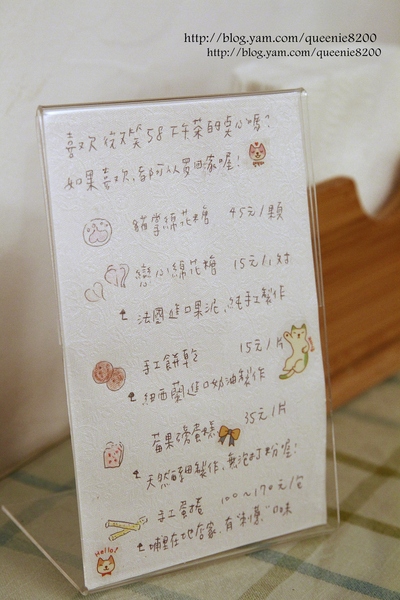 http://blog.yam.com/queenie8200
http://blog.yam.com/queenie8200
喜歡微笑58下午茶的點心嗎?
如果喜歡,都可以買回家喔!
貓掌綿花糖 45元/顆
戀心綿花糖 15元/1對
法國進口果泥,純手工製作
手工餅乾 15元/片
紐西蘭進口奶油製作
莓果磅蛋糕 35元/片
天然酵母製作,無泡打粉喔!
手工蛋捲 100~170元/包
埔里在地店家,有"刺蔥"口味
Hello!